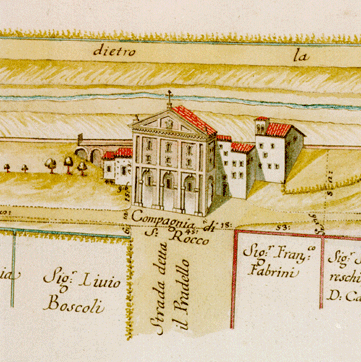 dietro la
Compagnia di
S: Rocco
Strada detta
il Pradello
Sig.r Liuio
Boscoli
Sig.r Fran.co
Fabrini
Sig.r
reschi
D: Ca
53:
18: